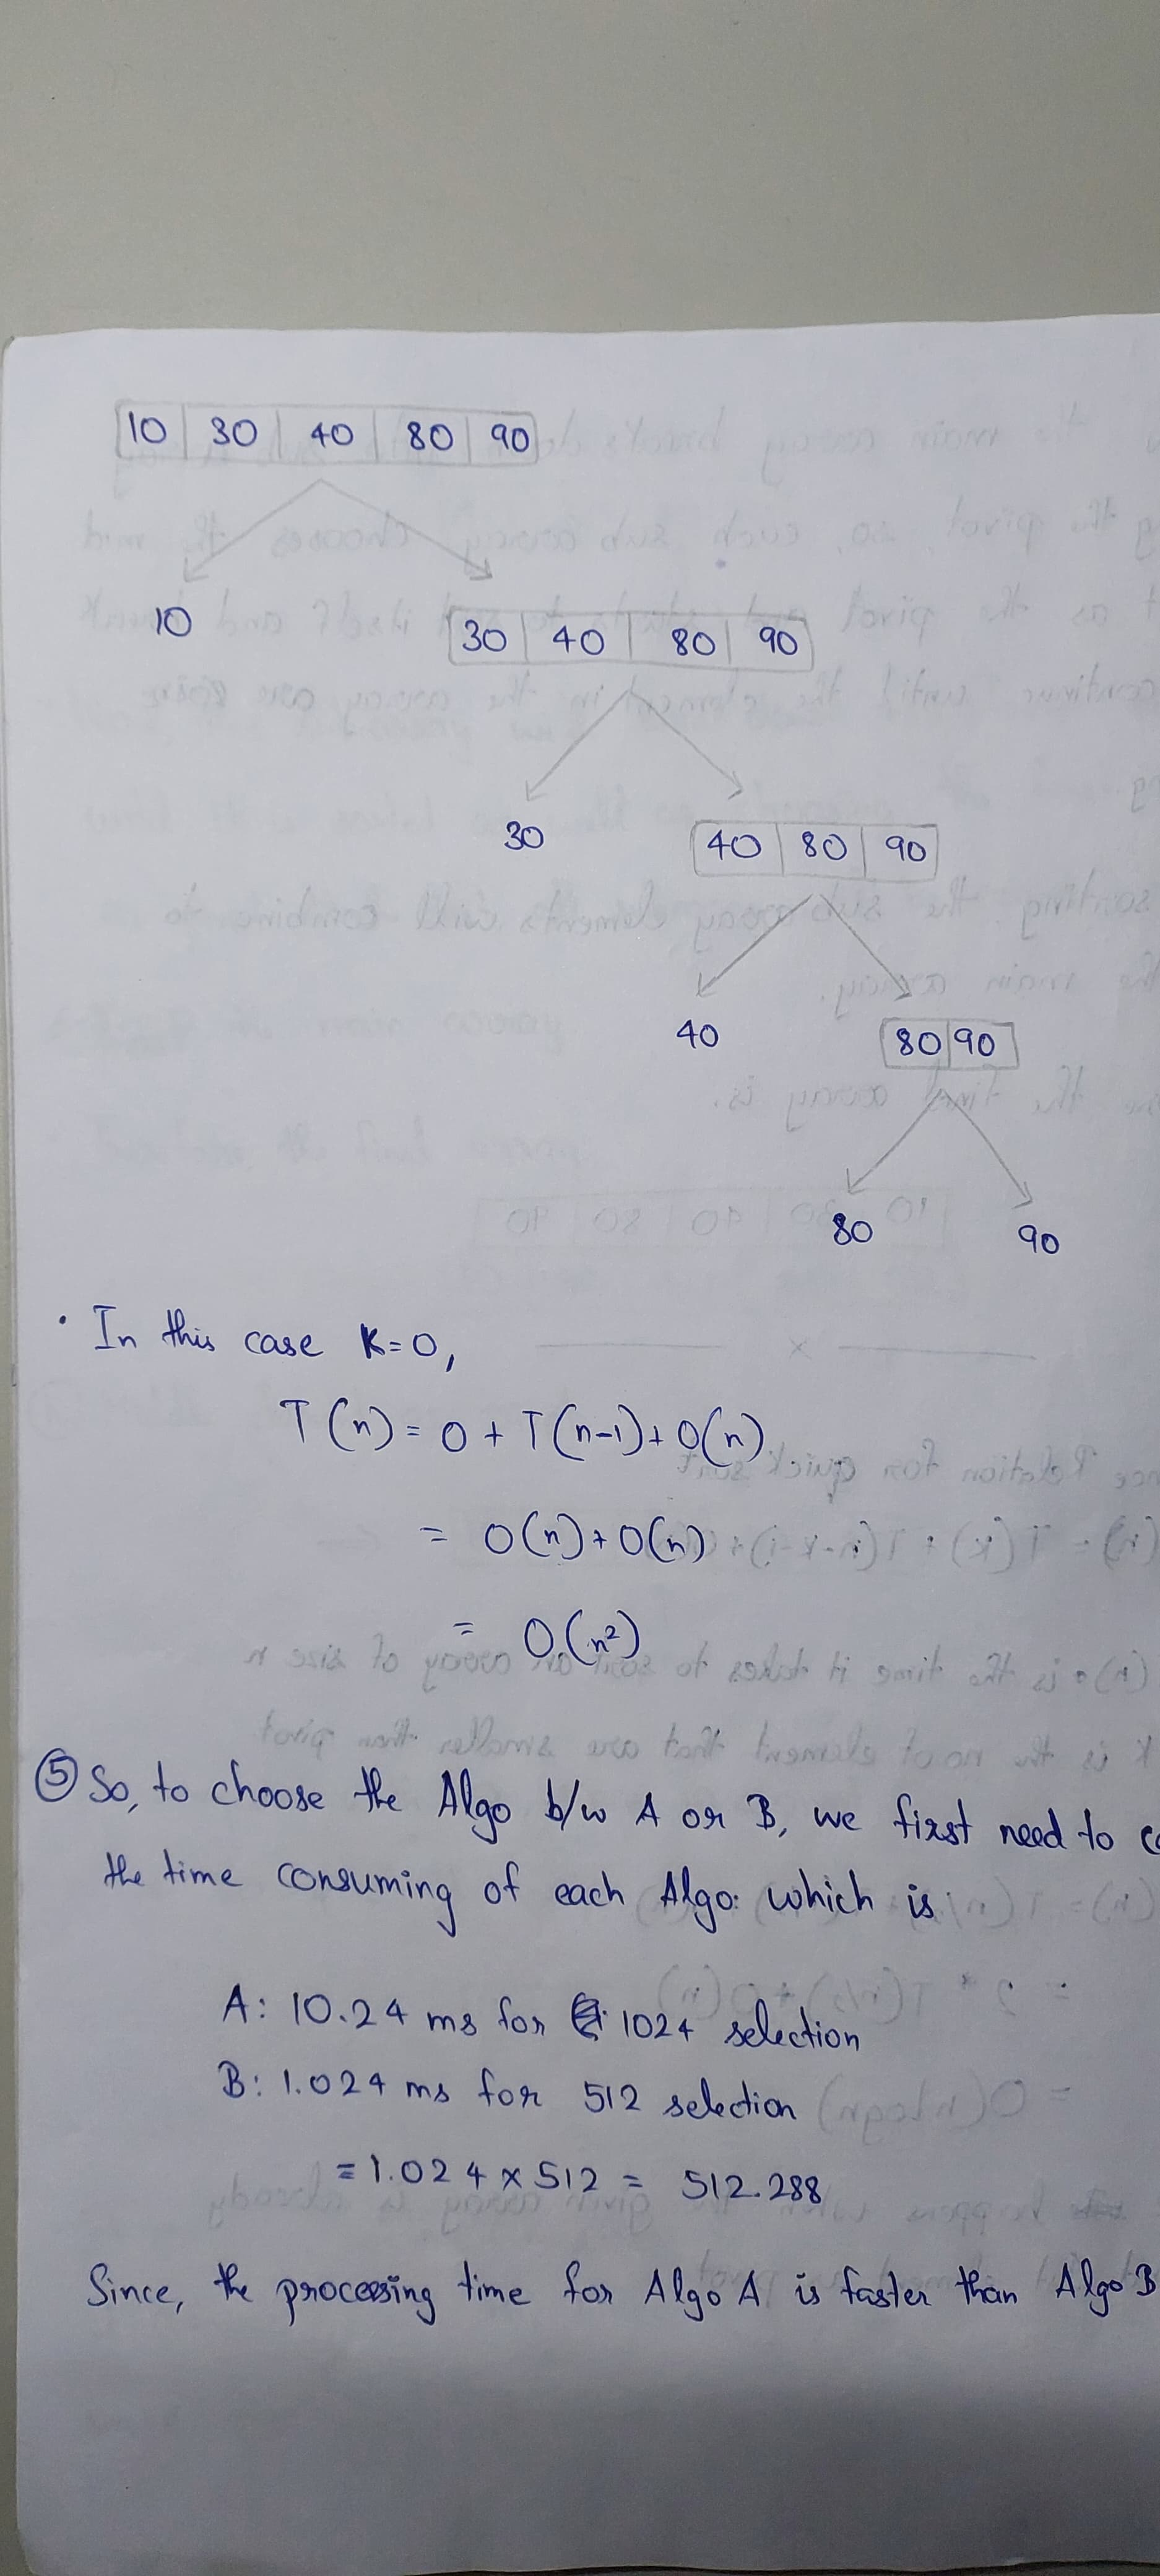 10 30 40 80 90
10 30 40 80 90
30 40 80 90
40 80 90
80 90
• In this case K=0,
T(n) = 0 + T(n-1) + O(n)
= O(n) + O(n)
= O(n²)
⑤ So, to choose the Algo b/w A or B, we first need to
the time consuming of each Algo. which is
A: 10.24 ms for 1024 selection
B: 1.024 ms for 512 selection
= 1.024 x 512 = 512.288
Since, the processing time for Algo A is faster than Algo B